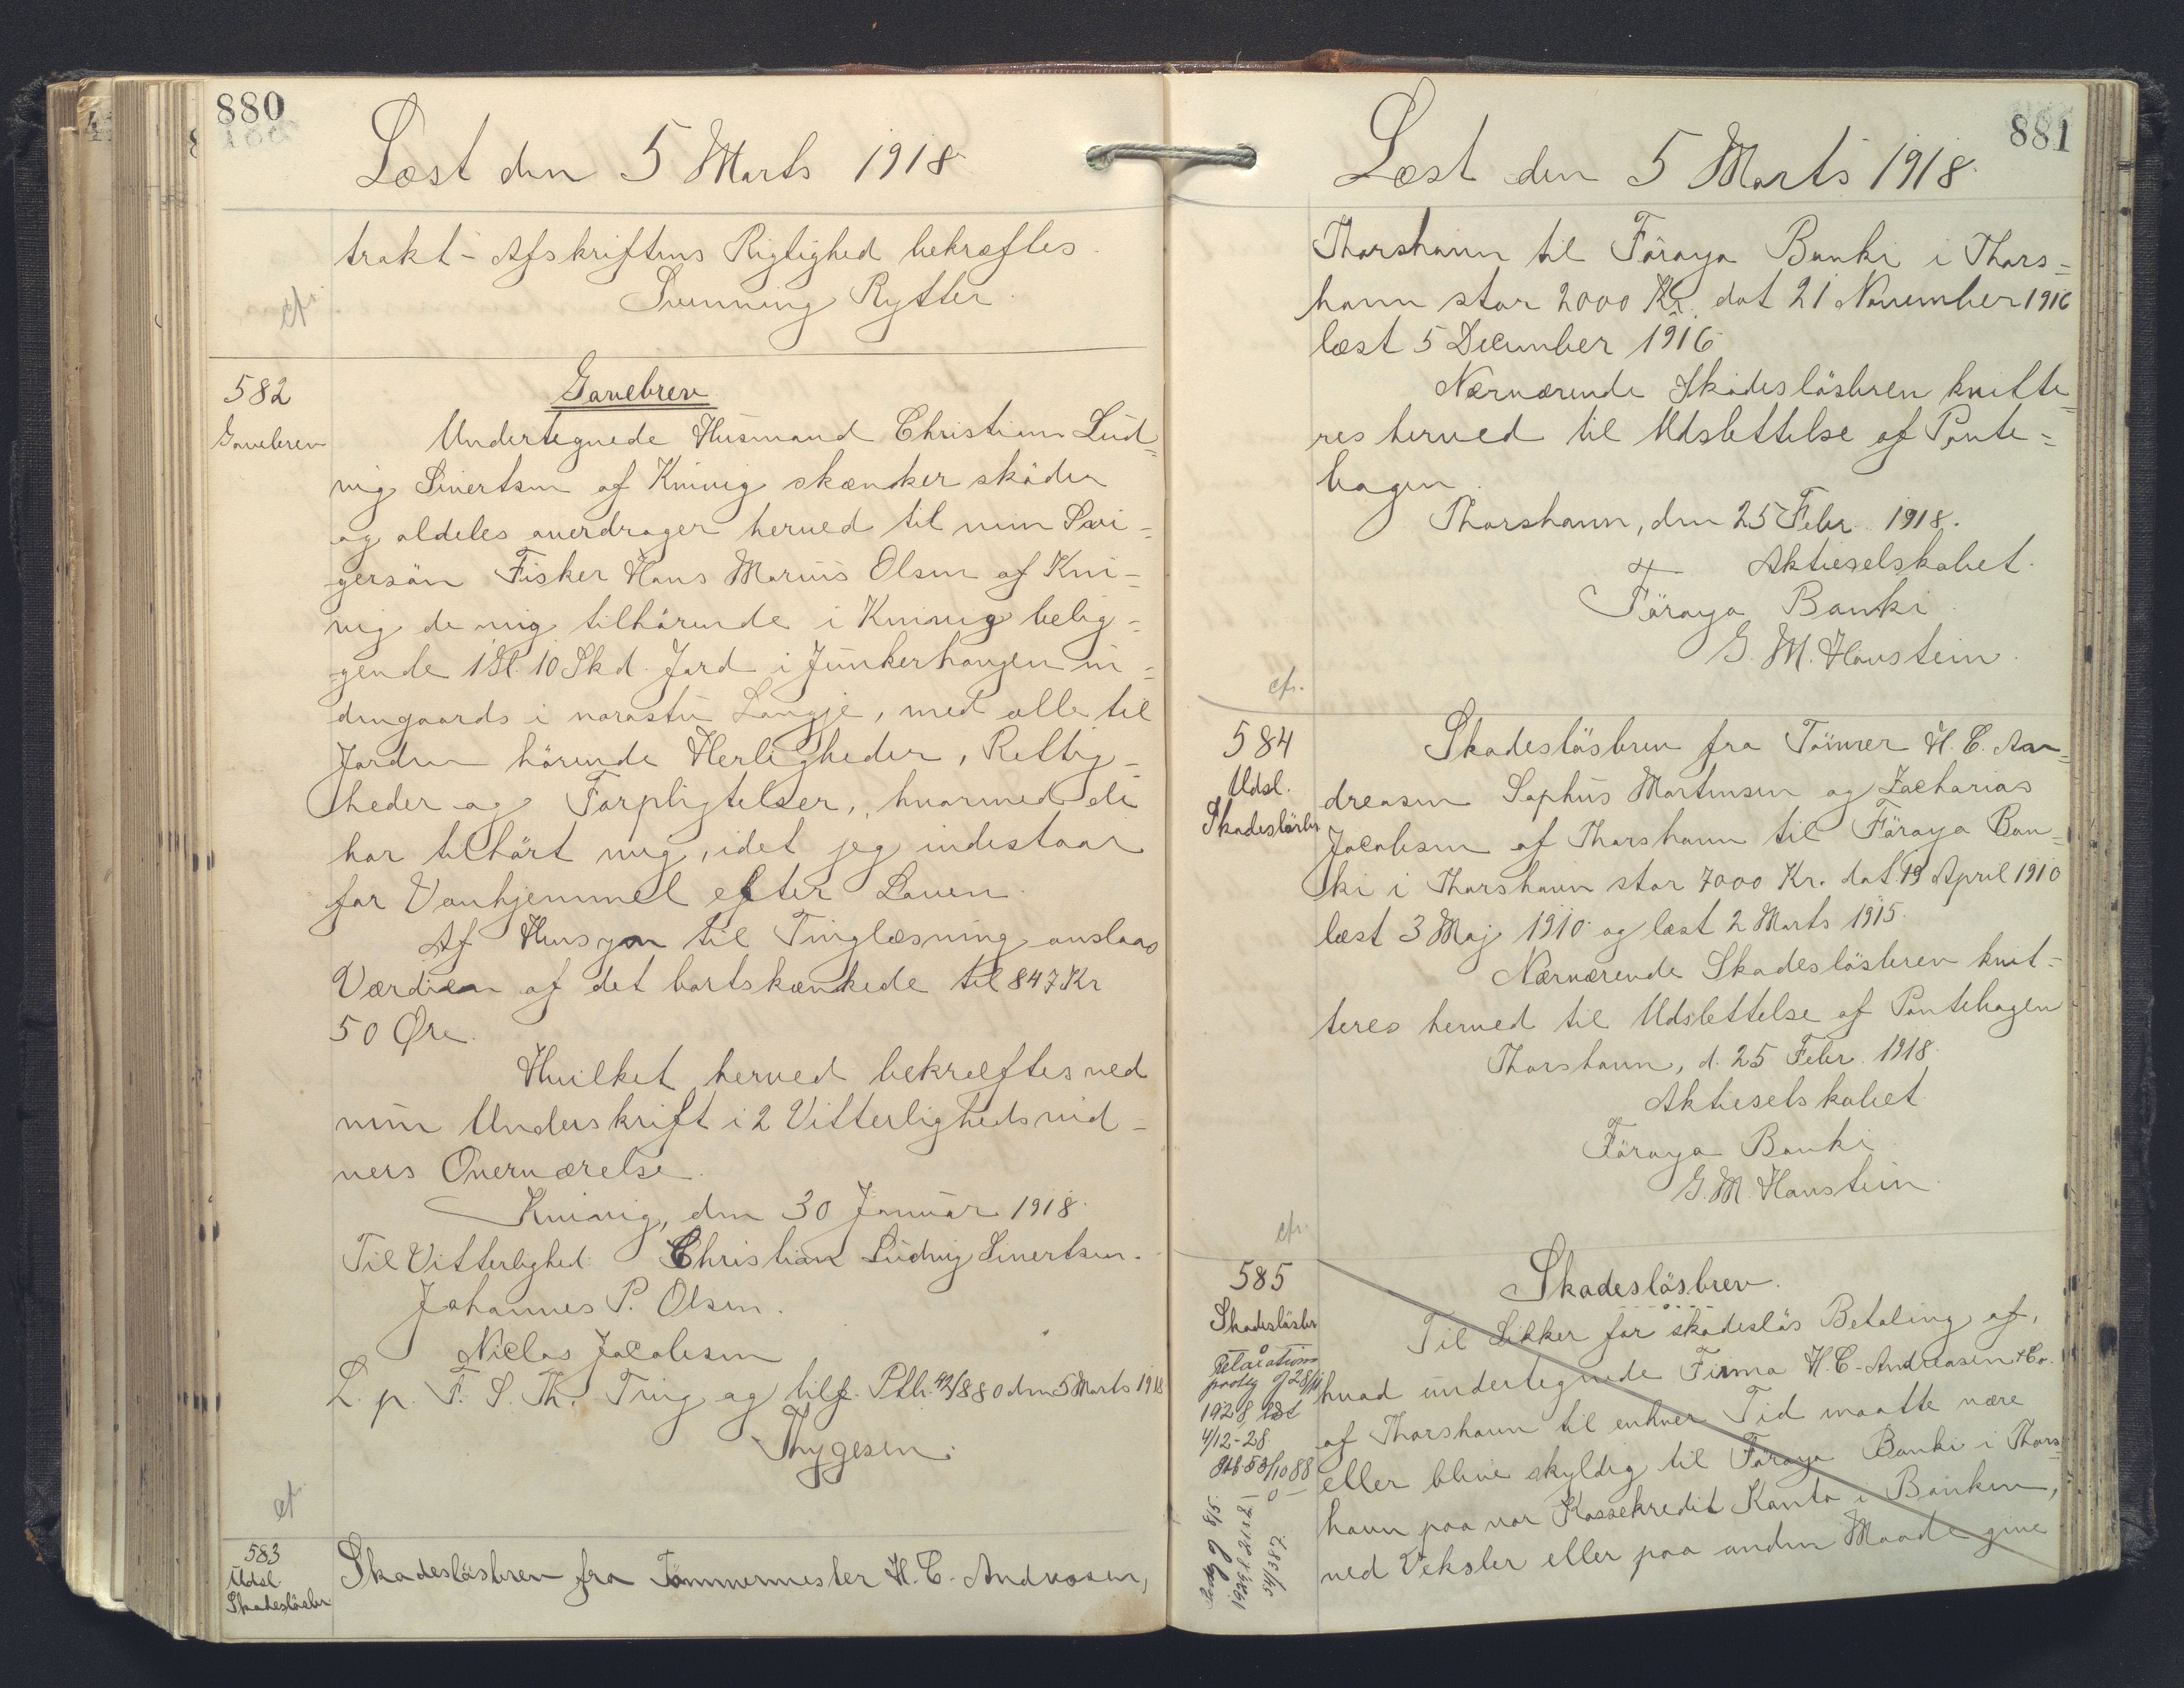 880
Læst den 5 Marts 1918
trakt-Afskriftens Rigtighed bekræftes.
Svenning Rytter.
cfr.
582
Gavebrev
Gavebrev
Undertegnede Husmand Christian Lud=
vig Sivertsen af Kvivig skænker skøder
og aldeles overdrager herved til min Svi=
gersøn Fisker Hans Marius Olsen af Kvi=
vig de mig tilhørende i Kvivig belig=
gende 1 Gl. 10 Skd. Jord i Junkerhaugen in=
dengaards i norastu Langje, med alle til
Jorden hørende Herligheder, Rettig=
heder og Forpligtelser, hvormed de
har tilhørt mig, idet jeg indestaar
for Vanhjemmel efter Loven.
Af Hensyn til Tinglæsning anslaas
Værdien af det bortskænkede til 847 Kr
50 Øre.
Hvilket herved bekræftes ved
min Underskrift i 2 Vitterlighedsvid=
ners Overværelse.
Kvivig, den 30 Januar 1918.
Til Vitterlighed: Christian Ludvig Sivertsen.
Johannes P. Olsen.
Niclas Jacobsen
L. p. F. S. Th. Ting og tilf. Ptb. 42/880 den 5 Marts 1918
Thygesen.
cf.
583
Udsl.
Skadesløsbr.
Skadesløsbrev fra Tømmermester H. C. Andreasen,
881
Læst den 5 Marts 1918.
Thorshavn til Føroya Banki i Thors=
havn stor 2000 Kr. dat 21 November 1916
læst 5 December 1916.
Nærværende Skadesløsbrev kvitte=
res herved til Udslettelse af Pante=
bogen.
Thorshavn, den 25 Febr. 1918.
Aktieselskabet.
Føroya Banki.
G. M. Hanstein.
cfr.
584
Udsl.
Skadesløsbr
Skadesløsbrev fra Tømrer H. C. An=
dreasen Sophus Martinsen og Zacharias
Jacobsen af Thorshavn til Føroya Ban=
ki i Thorshavn stor 7000 Kr. dat 19 April 1910
læst 3 Maj 1910 og læst 2 Marts 1915.
Nærværende Skadesløsbrev kvit=
teres herved til Udslettelse af Pantebogen
Thorshavn, d. 25 Febr. 1918.
Aktieselskabet
Føroya Banki.
G. M. Hanstein.
cfr.
585
Skadesløsbr
1928 læst
4/12-28
Ptb 53/1088
Skadesløsbrev.
Til Sikker for skadesløs Betaling af,
hvad undertegnede Firma H. C. Andreasen & Co.
af Thorshavn til enhver Tid maatte være
eller blive skyldig til Føroya Banki i Thors=
havn paa vor Kassekredit Konto i Banken,
ved Veksler eller paa anden Maade give